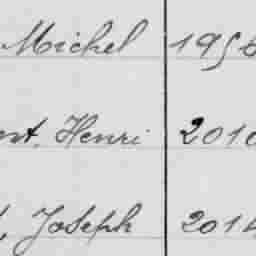 Michel 195
Henri 2010
Joseph 201